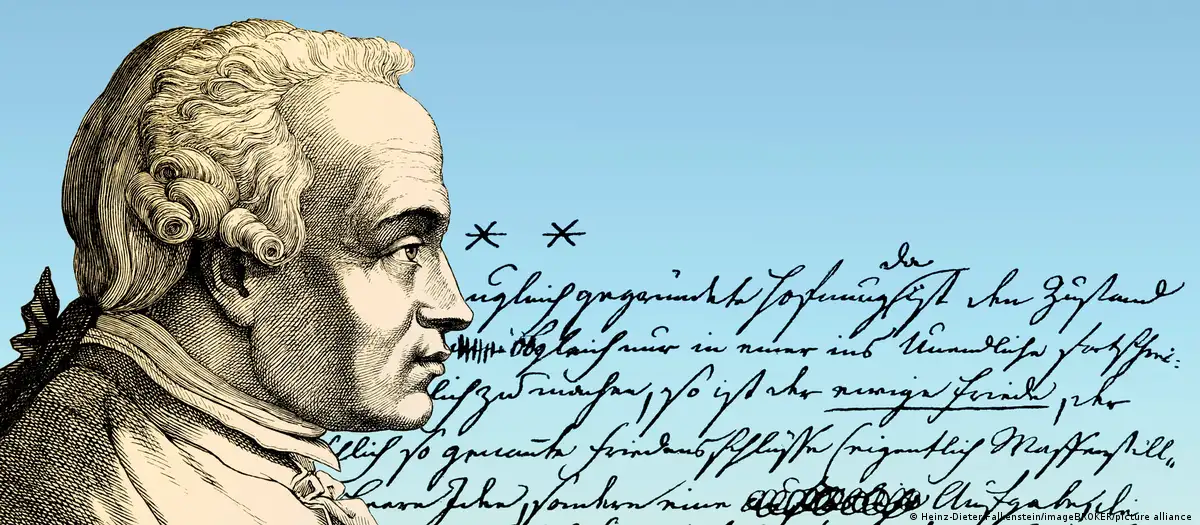 * *
ugleich gegründete Hofnung ist den Zustand
da
obgleich nur in einer ins Unendliche fortschrei-
lich zu machen, so ist der ewige Friede, der
hlich so genannte Friedensschlüsse (eigentlich Waffenstill„
leere Idee, sondern eine Aufgabe, di
© Heinz-Dieter Falkenstein/imageBROKER/picture alliance